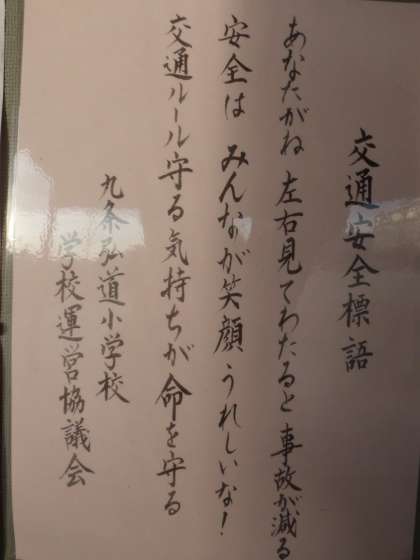 交通安全標語
あなたがね 左右見てわたると事故が減る
安全は みんなが笑顔 うれしいな!
交通ルール守る気持ちが命を守る
九条弘道小学校
学校運営協議会